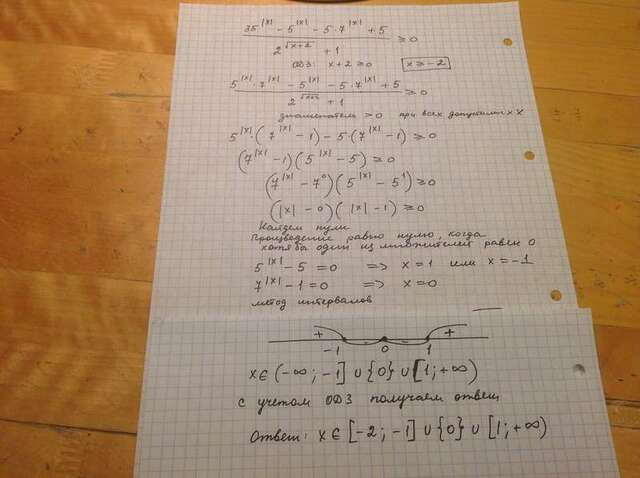 35^|x| - 5^|x| - 5·7^|x| + 5
2^√(x+2) + 1
≥ 0
ОДЗ: x+2 ≥ 0 x ≥ -2
5^|x|·7^|x| - 5^|x| - 5·7^|x| + 5
2^√(x+2) + 1
≥ 0
знаменатель > 0 при всех допустим x
5^|x|·(7^|x| - 1) - 5·(7^|x| - 1) ≥ 0
(7^|x| - 1)(5^|x| - 5) ≥ 0
(7^|x| - 7^0)(5^|x| - 5^1) ≥ 0
(|x| - 0)(|x| - 1) ≥ 0
Найдем нули
Произведение равно нулю, когда
хотя бы один из множителей равен 0
5^|x| - 5 = 0 => x = 1 или x = -1
7^|x| - 1 = 0 => x = 0
метод интервалов
+ - - +
-1 0 1
x ∈ (-∞; -1] ∪ {0} ∪ [1; +∞)
с учетом ОДЗ получаем ответ
Ответ: x ∈ [-2; -1] ∪ {0} ∪ [1; +∞)